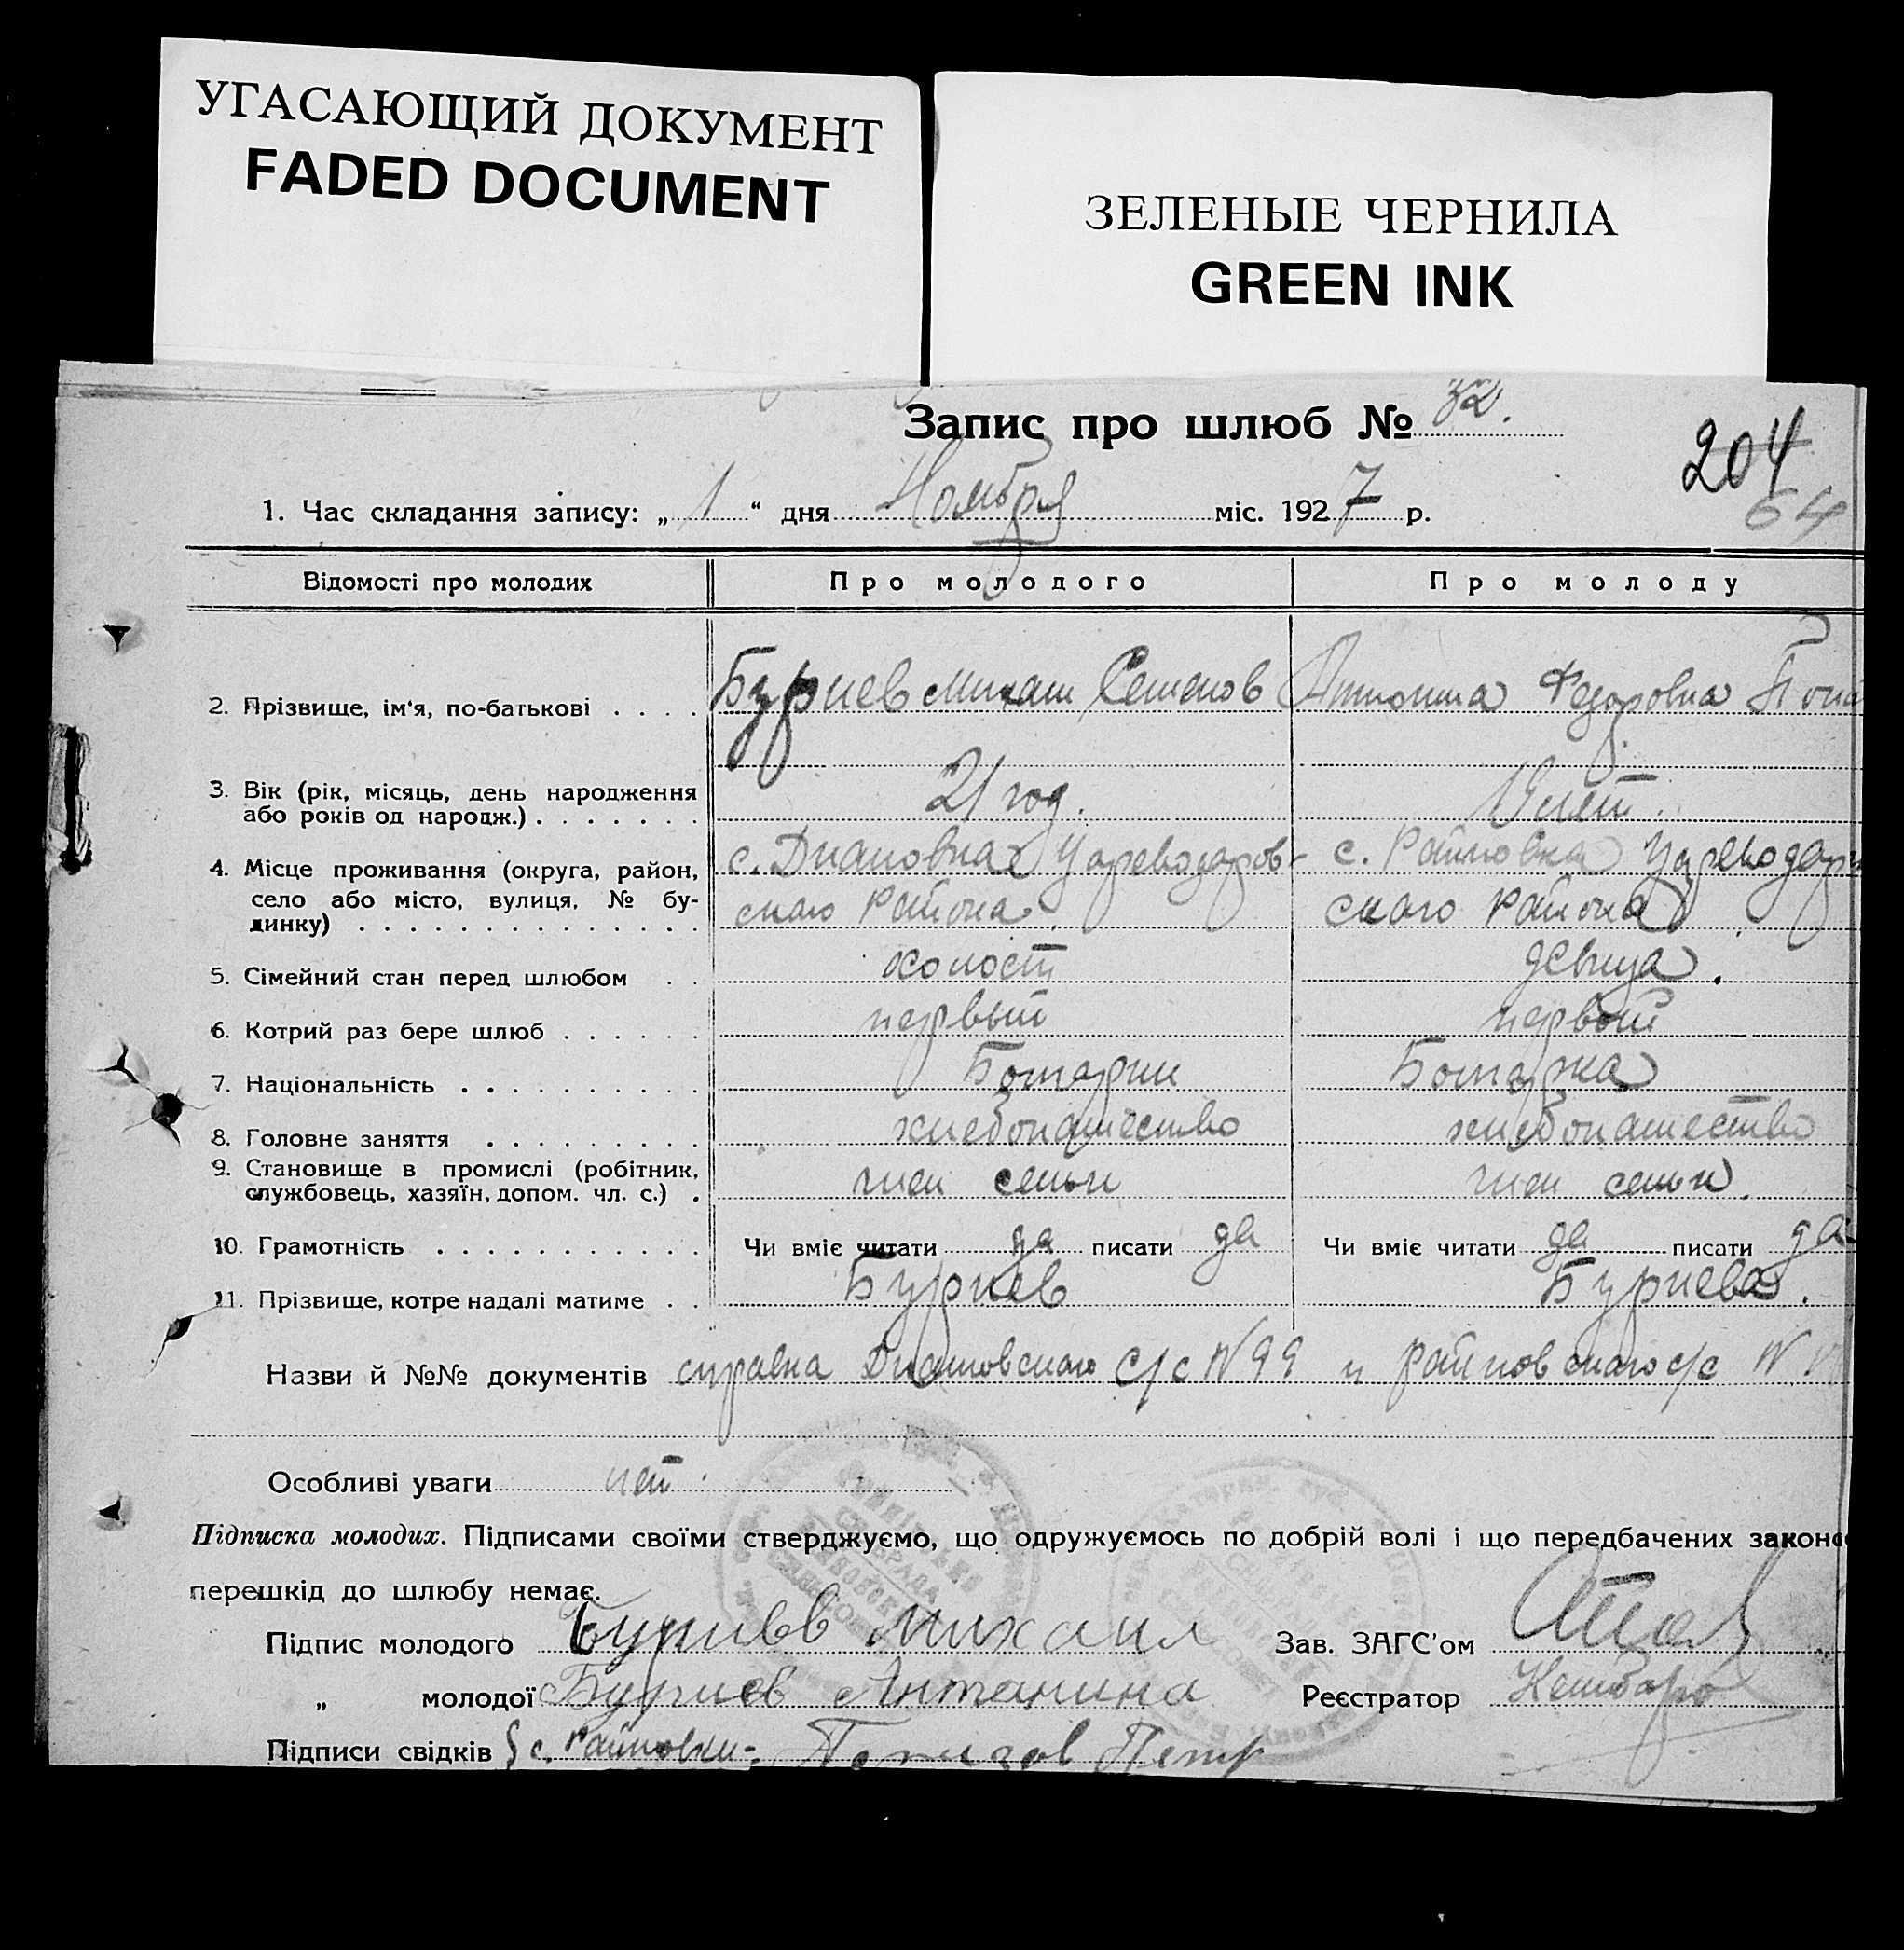 УГАСАЮЩИЙ ДОКУМЕНТ
FADED DOCUMENT
ЗЕЛЕНЫЕ ЧЕРНИЛА
GREEN INK
Запис про шлюб № 32.
204
64
1. Час складання запису: „ 1 “ дня Ноября міс. 1927 р.
Відомості про молодих Про молодого Про молоду
2. Прізвище, ім'я, по-батькові . . . . Бурнев Михаил Семенов Антонина Федоровна
3. Вік (рік, місяць, день народження
або років од народж.) . . . . . . . 21 год. 19 лет.
4. Місце проживання (округа, район, с. Диановка Цареводаров- с. Райновка Цареводар
село або місто, вулиця, № бу- ского района. ского района.
динку) . . . . . . . . . . . . . .
5. Сімейний стан перед шлюбом . . холост девица.
6. Котрий раз бере шлюб . . . . . . первый первый
7. Національність . . . . . . . . . . Болгарин Болгарка
8. Головне заняття . . . . . . . . . хлебопашество хлебопашество
9. Становище в промислі (робітник,
службовець, хазяїн, допом. чл. с.) . член семьи член семьи.
10. Грамотність . . . . . . . . . . . Чи вміє читати да писати да Чи вміє читати да писати да
11. Прізвище, котре надалі матиме . . Бурнев Бурнева.
Назви й №№ документів справка Диановского с/с N 99 и Райновского с/с N
Особливі уваги нет.
Підписка молодих. Підписами своїми стверджуємо, що одружуємось по добрій волі і що передбачених законо
перешкід до шлюбу немає.
Підпис молодого Бурнев Михаил Зав. ЗАГС'ом
„ молодої Бурнев Антанина Реєстратор
Підписи свідків с. Райновки: Петр